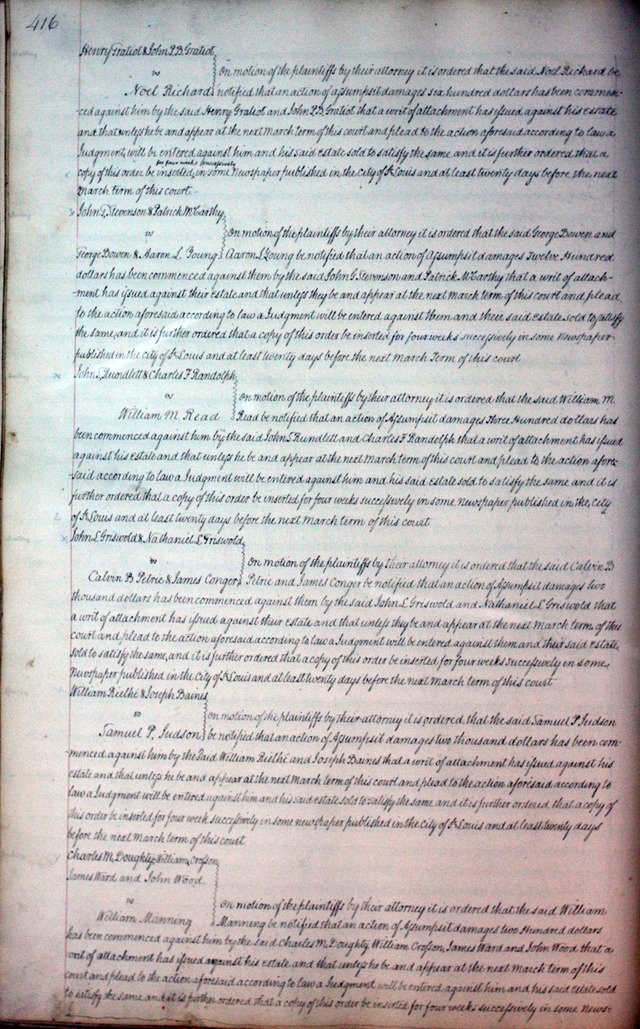 416
Henry Gratiot & John P. B. Gratiot
vs
On motion of the plaintiffs by their attorney it is ordered that the said Noel Richard be
Noel Richard notified that an action of assumpsit damages six hundred dollars has been commen-
ced against him by the said Henry Gratiot and John P B Gratiot that a writ of attachment has issued against his estate
and that unless he be and appear at the next March term of this court and plead to the action aforesaid according to law a
Judgment will be entered against him and his said estate sold to satisfy the same and it is further ordered that a
for four weeks successively
copy of this order be inserted in some Newspaper published in the City of St Louis and at least twenty days before the next
March term of this court
John G Stevenson & Patrick McCarthy
vs
On motion of the plaintiffs by their attorney it is ordered that the said George Bowen and
George Bowen & Aaron L Young Aaron L Young be notified that an action of Assumpsit damages Twelve Hundred
dollars has been commenced against them by the said John G Stevenson and Patrick McCarthy that a writ of attach-
ment has issued against their estate and that unless they be and appear at the next March term of this court and plead
to the action aforesaid according to law a Judgment will be entered against them and their said estate sold to satisfy
the same, and it is further ordered that a copy of this order be inserted for four weeks successively in some Newspaper
published in the City of St Louis and at least twenty days before the next March Term of this court
John S Rundlett & Charles F Randolph
vs
On motion of the plaintiffs by their attorney it is ordered that the said William M
William M Read Read be notified that an action of Assumpsit damages Three Hundred dollars has
been commenced against him by the said John S Rundlett and Charles F Randolph that a writ of attachment has issued
against his estate and that unless he be and appear at the next March term of this court and plead to the action afore-
said according to law a Judgment will be entered against him and his said estate sold to satisfy the same and it is
further ordered that a copy of this order be inserted for four weeks successively in some Newspaper published in the City
of St Louis and at least twenty days before the next March term of this court
John L Griswold & Nathaniel L Griswold
vs
On motion of the plaintiffs by their attorney it is ordered that the said Calvin B
Calvin B Petrie & James Conger Petrie and James Conger be notified that an action of Assumpsit damages two
thousand dollars has been commenced against them by the said John L Griswold and Nathaniel L Griswold that
a writ of attachment has issued against their estate and that unless they be and appear at the next March term of this
court and plead to the action aforesaid according to law a Judgment will be entered against them and their said estate
sold to satisfy the same, and it is further ordered that a copy of this order be inserted for four weeks successively in some
Newspaper published in the City of St Louis and at least twenty days before the next March term of this court
William Riethe & Joseph Baines
vs
On motion of the plaintiffs by their attorney it is ordered that the said Samuel P. Judson
Samuel P. Judson be notified that an action of Assumpsit damages two thousand dollars has been com-
menced against him by the said William Riethe and Joseph Baines that a writ of attachment has issued against his
estate and that unless he be and appear at the next March term of this court and plead to the action aforesaid according to
law a Judgment will be entered against him and his said estate sold to satisfy the same and it is further ordered that a copy of
this order be inserted for four week successively in some newspaper published in the City of St Louis and at least twenty days
before the next March term of this court
Charles M. Doughty, William Crosson,
James Ward and John Wood
vs
On motion of the plaintiffs by their attorney it is ordered that the said William
William Manning Manning be notified that an action of Assumpsit damages two Hundred dollars
has been commenced against him by the said Charles M. Doughty, William Crosson, James Ward and John Wood that a
writ of attachment has issued against his estate and that unless he be and appear at the next March term of this
court and plead to the action aforesaid according to law a Judgment will be entered against him and his said estate sold
to satisfy the same and it is further ordered that a copy of this order be inserted for four weeks successively in some News-